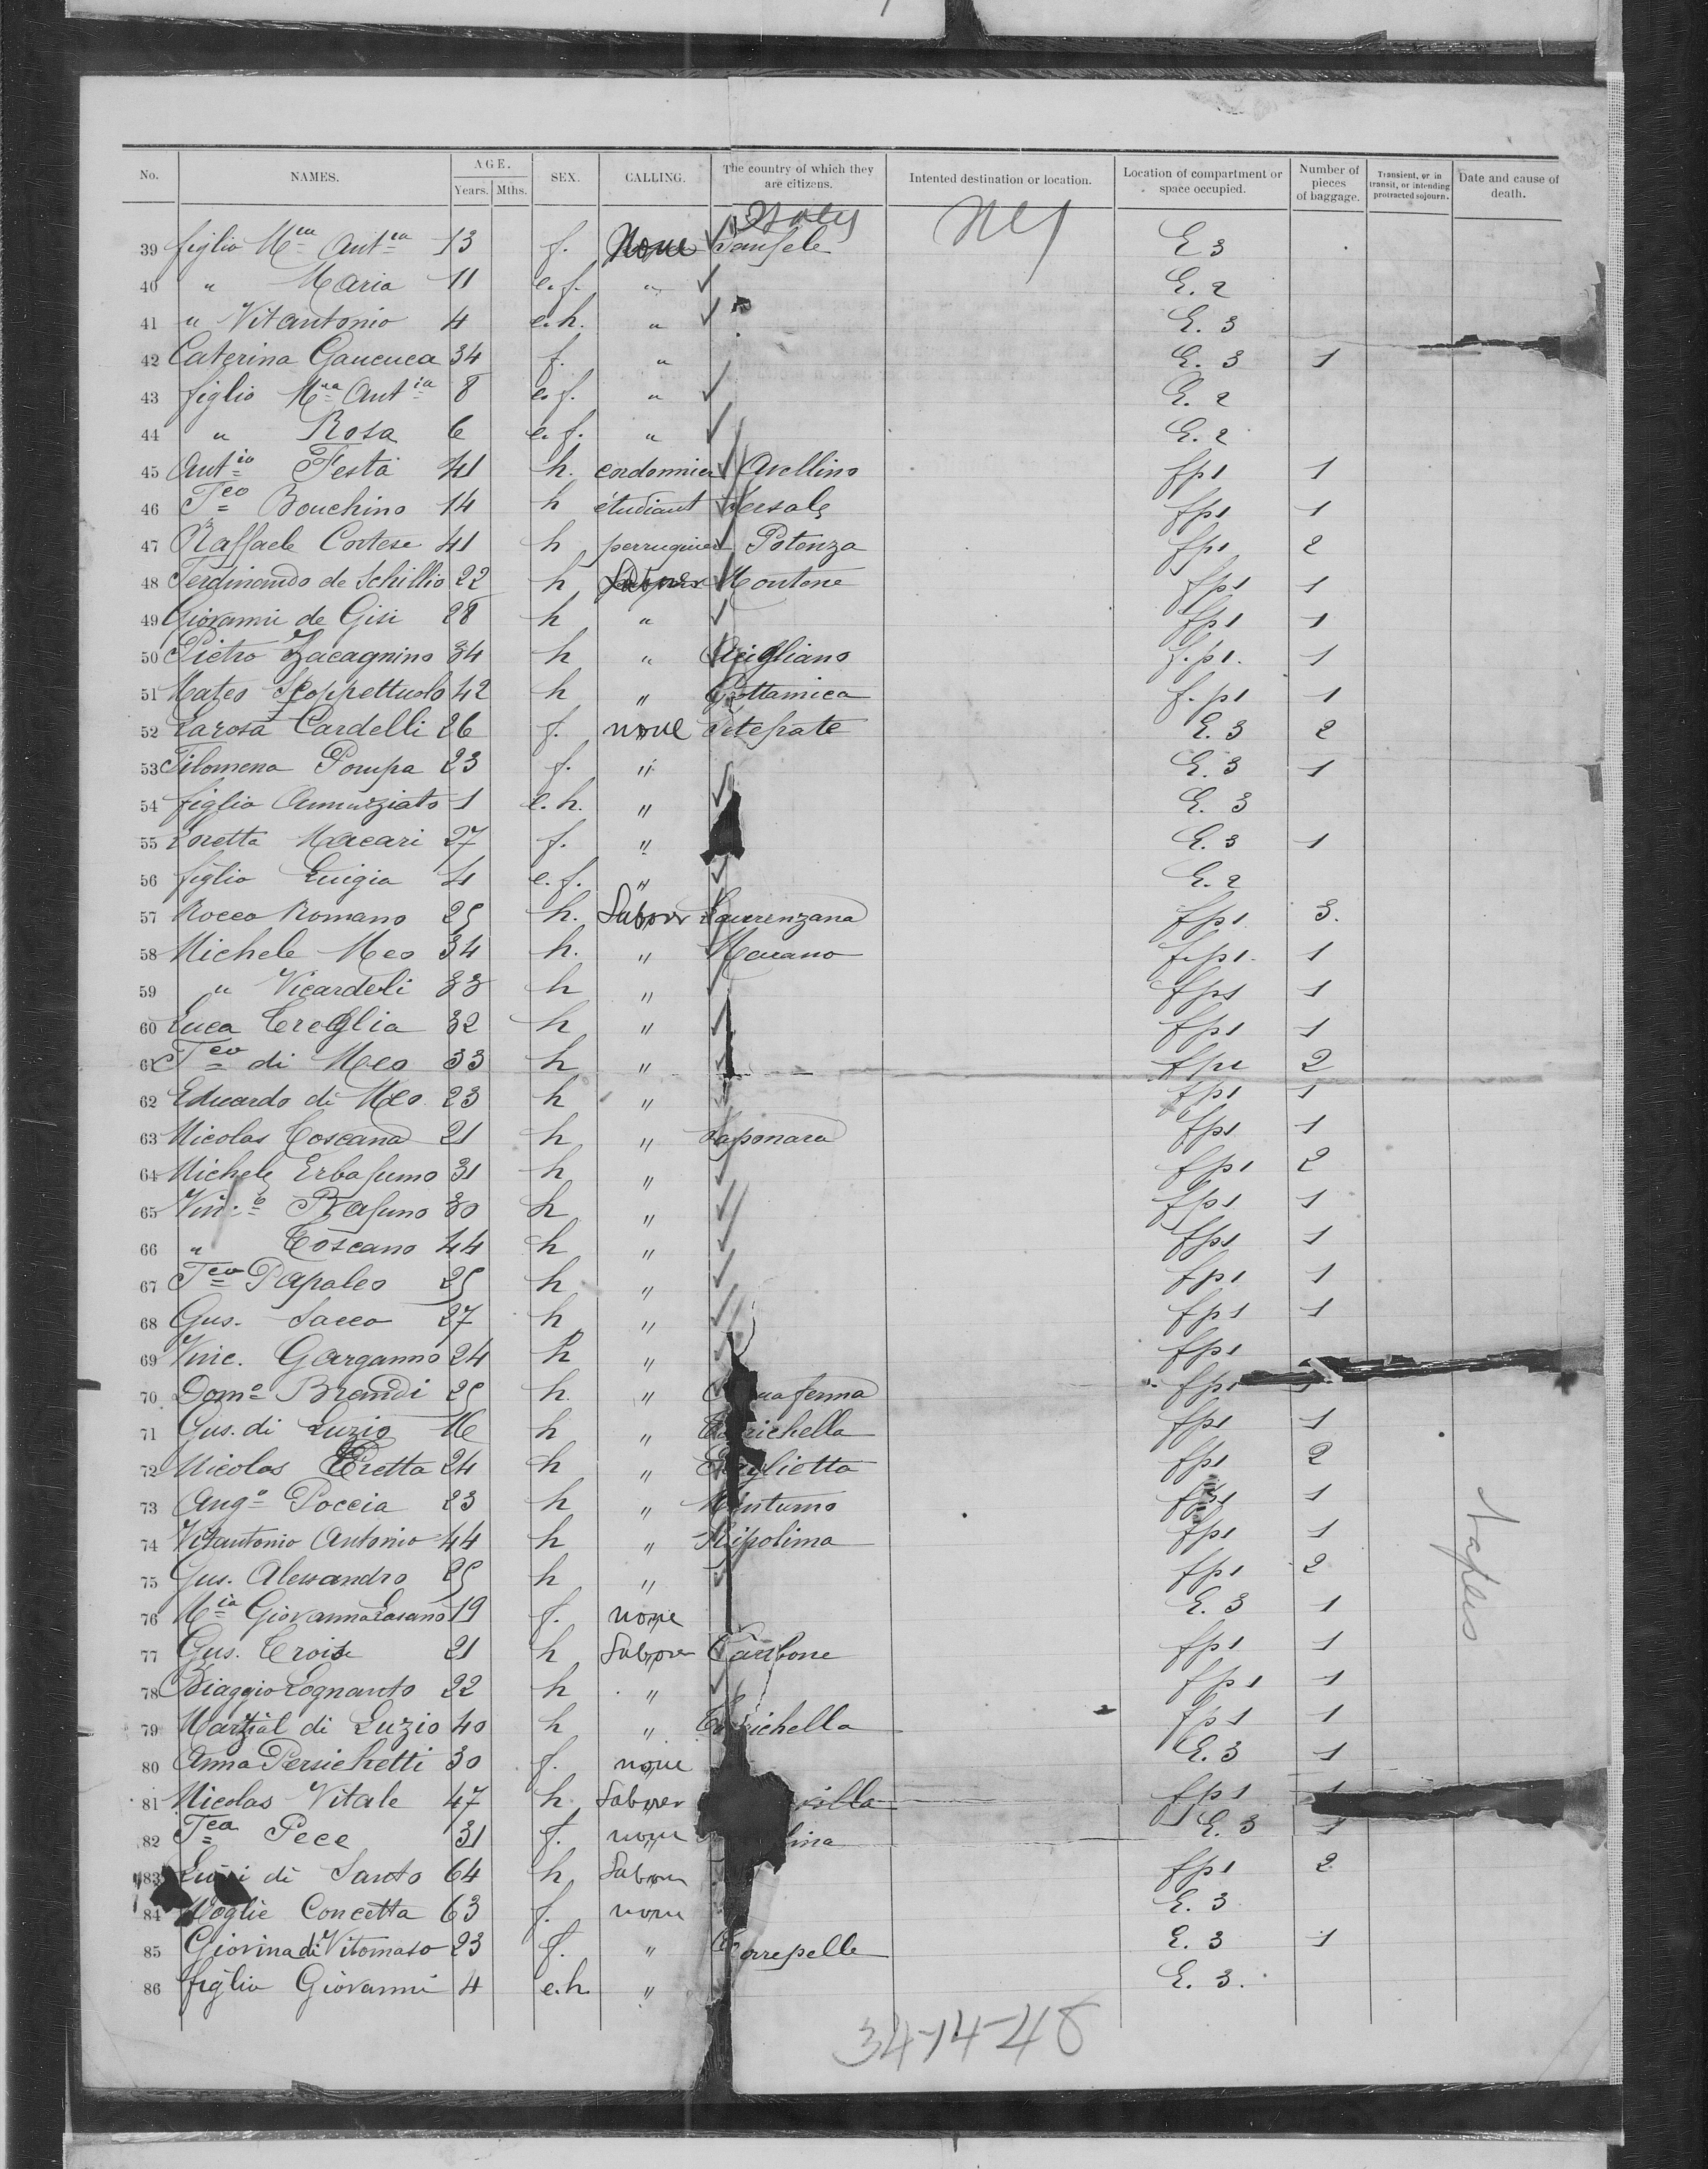 No. NAMES. AGE. Years. Mths. SEX. CALLING. The country of which they are citizens. Intented destination or location. Location of compartment or space occupied. Number of pieces of baggage. Transient, or in transit, or intending protracted sojourn. Date and cause of death.
Italy NY
39 figlio Mria Antia 13 f. None Sanfele E 3
40 " Maria 11 e.f. " E. 2
41 " Vitantonio 4 e.h. " E. 3
42 Caterina 34 f. " E. 3 1
43 figlio Mria Antia 8 e.f. " E. 2
44 " Rosa 6 e.f. " E. 2
45 Antio Festa 41 h. cordonnier Avellino fp1 1
46 Fco Bouchino 14 h étudiant fp1 1
47 Raffaele Cortese 41 h perruquier Potenza fp1 2
48 Ferdinando de Schillio 22 h Laborer Montone fp1 1
49 Giovanni de Gisi 28 h " fp1 1
50 Pietro Zacagnino 34 h " Avigliano f.p1. 1
51 Mateo Scoppettuolo 42 h " f.p1 1
52 Larosa Cardelli 26 f. none E. 3 2
53 Filomena Pompa 23 f. " E. 3 1
54 figlio Annunziato 1 e.h. " E. 3
55 Loretta Macari 27 f. " E. 3 1
56 figlia Luigia 4 e.f. " E. 2
57 Rocco Romano 25 h. Laborer Laurenzana fp1 3.
58 Michele Meo 34 h. " f.p1. 1
59 " Vicardeli 33 h " fp1 1
60 Luca Creglia 32 h " fp1 1
61 Fco di Meo 33 h " fp1 2
62 Eduardo di Meo 23 h " fp1 1
63 Nicolas Toscana 21 h " Saponara fp1 1
64 Michele Erbafumo 31 h " fp1 2
65 Vinco Brafuno 30 h " fp1 1
66 " Toscano 44 h " fp1 1
67 Fco Papaleo 25 h " fp1 1
68 Gus. Sacco 27 h " fp1 1
69 Vinc. Garganno 24 h " fp1
70 Domo Brandi 25 h " fp1 1
71 Gus. di Luzio 16 h " fp1 1
72 Nicolas 24 h " fp1 2
73 Ango Poccia 23 h " Minturno fp1 1
74 Vitantonio Antonio 44 h " Ripolima fp1 1
75 Gus. Alessandro 25 h " fp1 2
76 Mia Giovanna Lasano 19 f. none E. 3 1
77 Gus. Croise 21 h Laborer Carbone fp1 1
78 Biaggio Lognanto 22 h " fp1 1
79 Martial di Luzio 40 h " fp1 1
80 Anna Persichetti 30 f. none E. 3 1
81 Nicolas Vitale 47 h. Laborer fp1 1
82 Fca Pece 31 f. none E. 3 1
83 di Santo 64 h Laborer fp1 2
84 Moglie Concetta 63 f. none E. 3
85 Giovina di Vitomaso 23 f. " E. 3 1
86 figlio Giovanni 4 e.h. " E. 3.
Naples
34-14-48